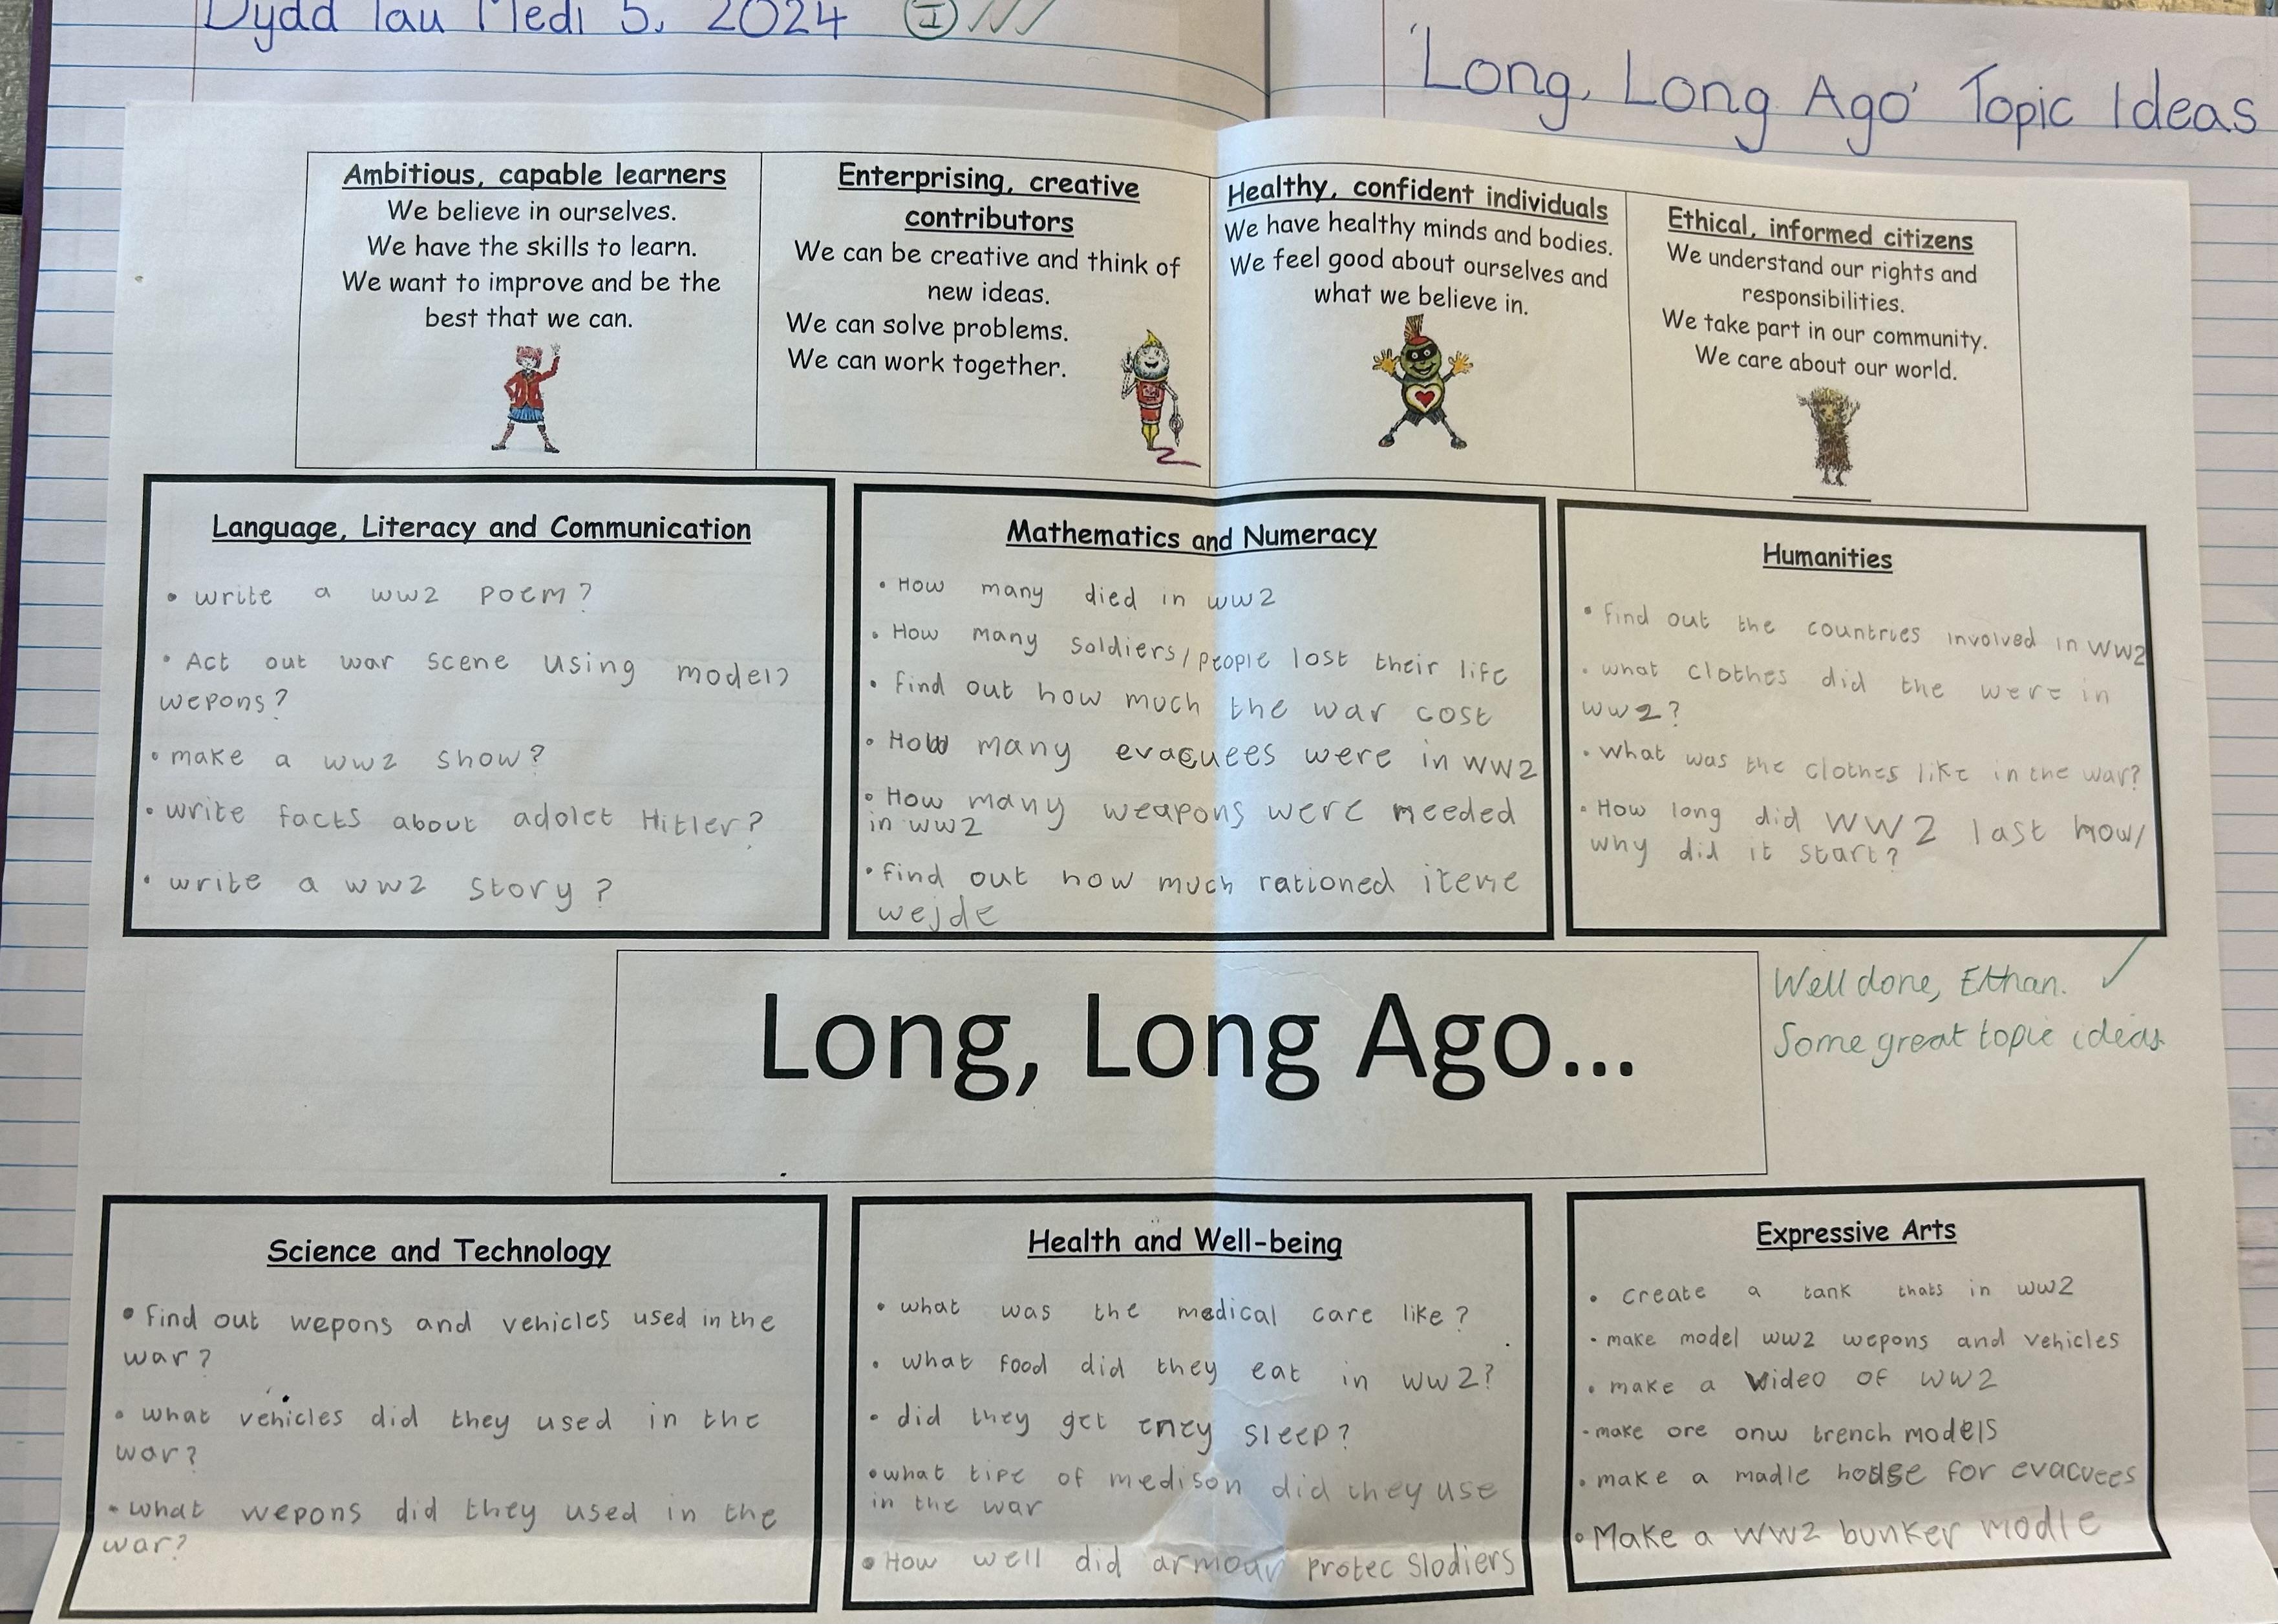 Dydd Iau Medi 5, 2024 I
'Long, Long Ago' Topic Ideas
Ambitious, capable learners
We believe in ourselves.
We have the skills to learn.
We want to improve and be the
best that we can.
Enterprising, creative
contributors
We can be creative and think of
new ideas.
We can solve problems.
We can work together.
Healthy, confident individuals
We have healthy minds and bodies.
We feel good about ourselves and
what we believe in.
Ethical, informed citizens
We understand our rights and
responsibilities.
We take part in our community.
We care about our world.
Language, Literacy and Communication
• write a ww2 poem?
• Act out war scene using model
wepons?
• make a ww2 show?
• write facts about Hitler?
• write a ww2 story?
Mathematics and Numeracy
• How many died in ww2
• How many soldiers/people lost their life
• find out how much the war cost
• How many evacuees were in WW2
• How many weapons were needed
in ww2
• find out how much rationed
Humanities
• find out the countries involved in WW2
• what clothes did the were in
ww2?
• What was the clothes like in the war?
• How long did WW2 last how/
why did it start?
Long, Long Ago...
Well done, Ethan. ✓
Some great topic ideas.
Science and Technology
• find out wepons and vehicles used in the
war?
• what vehicles did they used in the
war?
• what wepons did they used in the
war?
Health and Well-being
• what was the medical care like?
• what food did they eat in ww2?
• did they get eney sleep?
• what tipe of medison did they use
in the war
• How well did armour protec Slodiers
Expressive Arts
• create a tank thats in ww2
• make model ww2 wepons and vehicles
• make a video of ww2
• make ore onw trench models
• make a madle house for evacuees
• Make a WW2 bunker modle